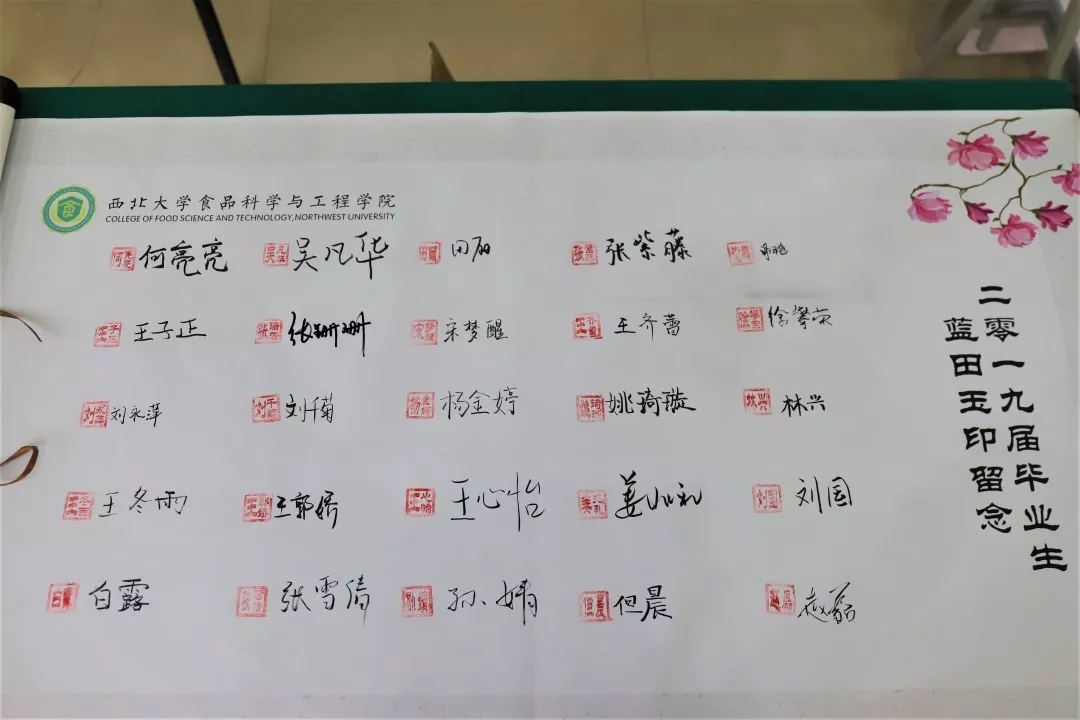 西北大学食品科学与工程学院
COLLEGE OF FOOD SCIENCE AND TECHNOLOGY, NORTHWEST UNIVERSITY
何亮亮 吴凡华 田丽 张紫藤
王子正 张珊珊 宋梦醒 王齐蕾 徐攀荣
刘永萍 刘千菊 杨金婷 姚琦璇 林兴
王冬雨 王郭娇 王心怡 姜小礼 刘园
白露 张雪倩 孙婧 但晨 赵磊
二零一九届毕业生
蓝田玉印留念